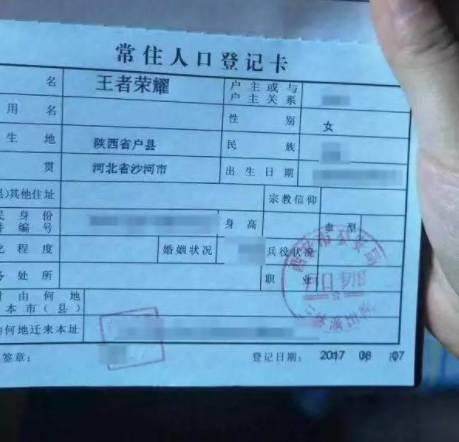 常住人口登记卡
名 王者荣耀 户主或与户主关系
用名 性别 女
生地 陕西省户县 民族
贯 河北省沙河市 出生日期
)其他住址 宗教信仰
民身份件编号 身高 血型
化程度 婚姻状况 兵役状况
务处所 职业
时由何地本市(县)
由何地迁来本址
签章: 登记日期: 2017 08 07